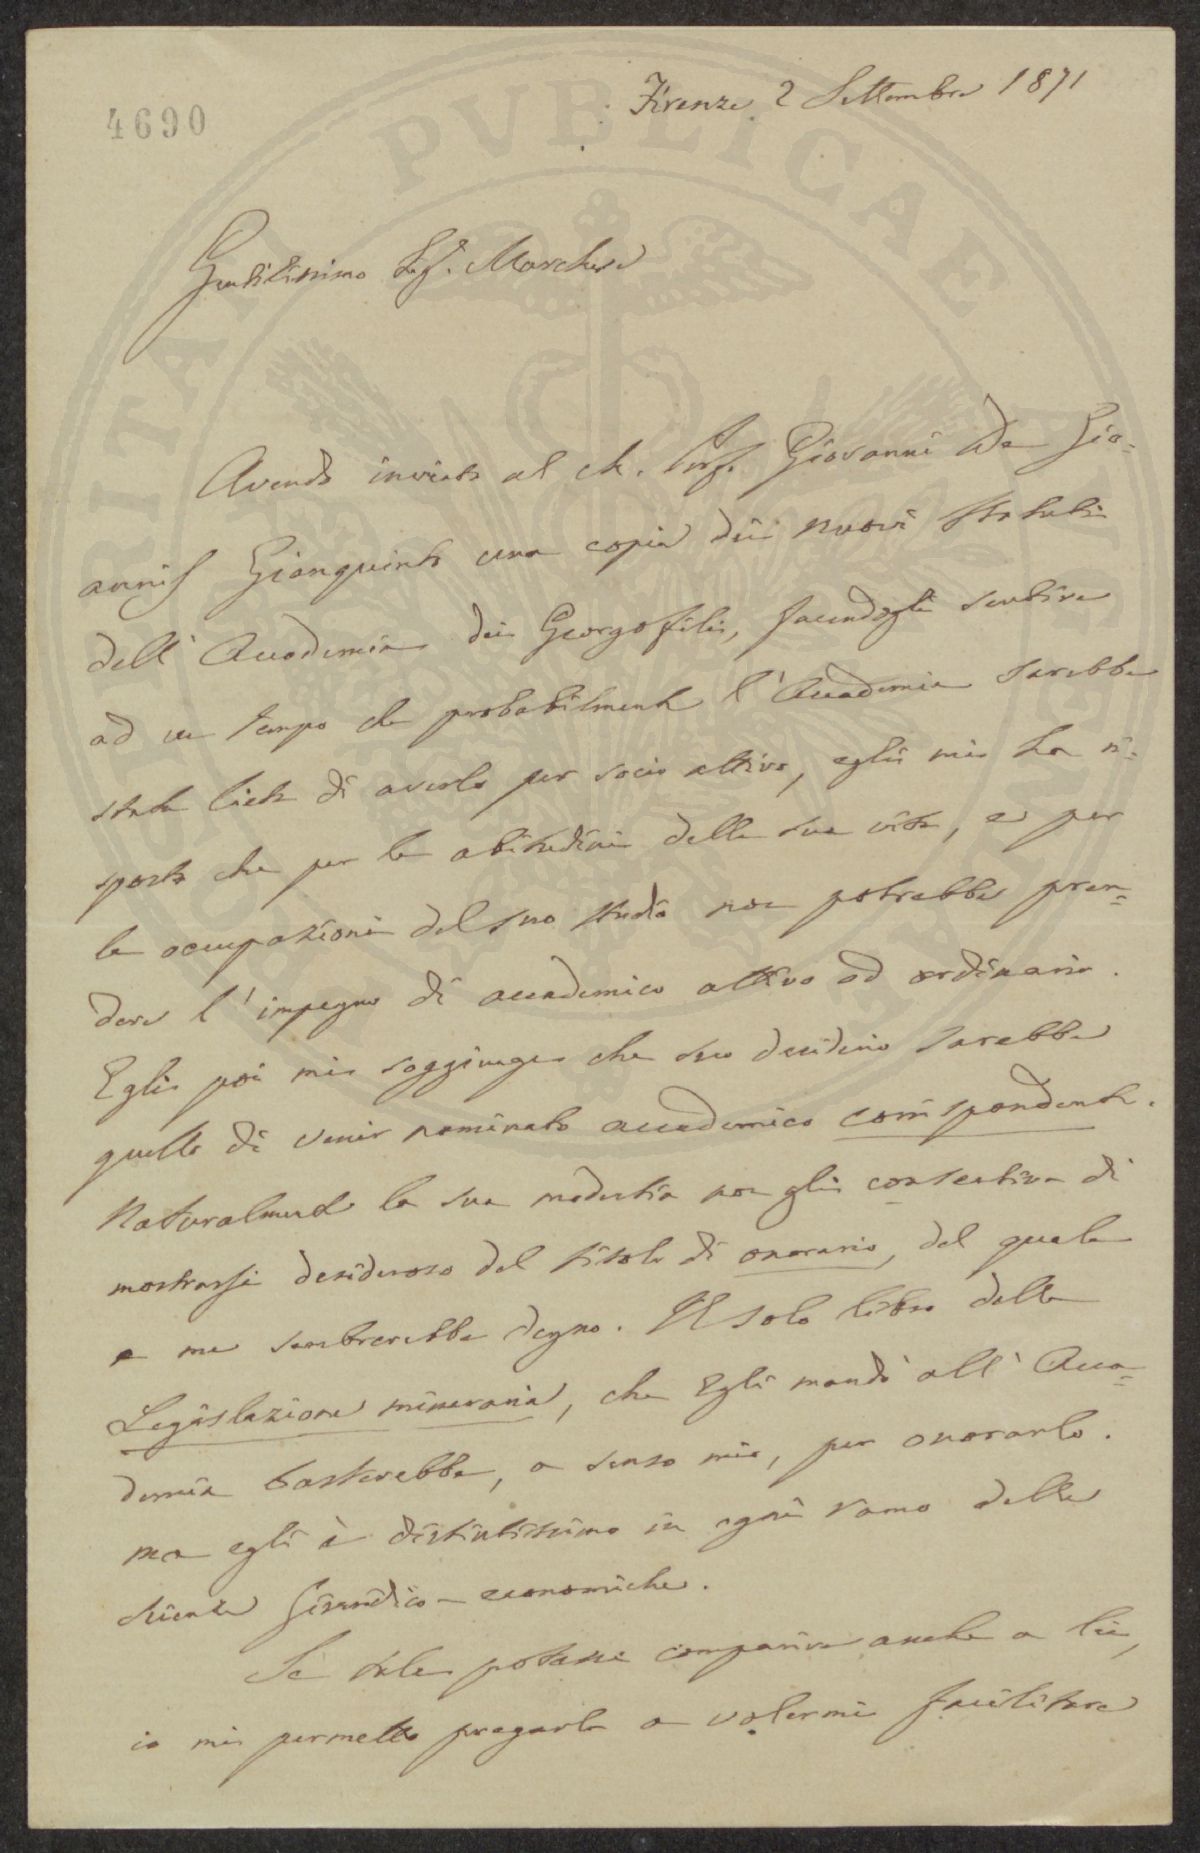 4690
Firenze 2 Settembre 1871
Gentilissimo Sig. Marchese
Avendo inviato al ch. Prof. Giovanni De Gio-
annis Gianquinto una copia dei nuovi Statuti
dell' Accademia dei Georgofili, facendogli sentire
ad un tempo che probabilmente l' Accademia sarebbe
stata lieta di averlo per socio attivo, egli mi ha ri-
sposto che per le abitudini della sua vita, e per
le occupazioni del suo studio non potrebbe pren-
dere l' impegno di accademico attivo od ordinario.
Egli poi mi soggiunge che suo desiderio sarebbe
quello di venir nominato accademico corrispondente.
Naturalmente la sua modestia non gli consentiva di
mostrarsi desideroso del titolo di onorario, del quale
a me sembrerebbe degno. Il solo libro della
Legislazione mineraria, che Egli mandò all' Acca-
demia basterebbe, a senso mio, per onorarlo.
ma egli è distintissimo in ogni ramo delle
scienze giuridico-economiche.
Se tale potesse comparire anche a lei,
io mi permetto pregarla a volermi facilitare
PVBLICAE